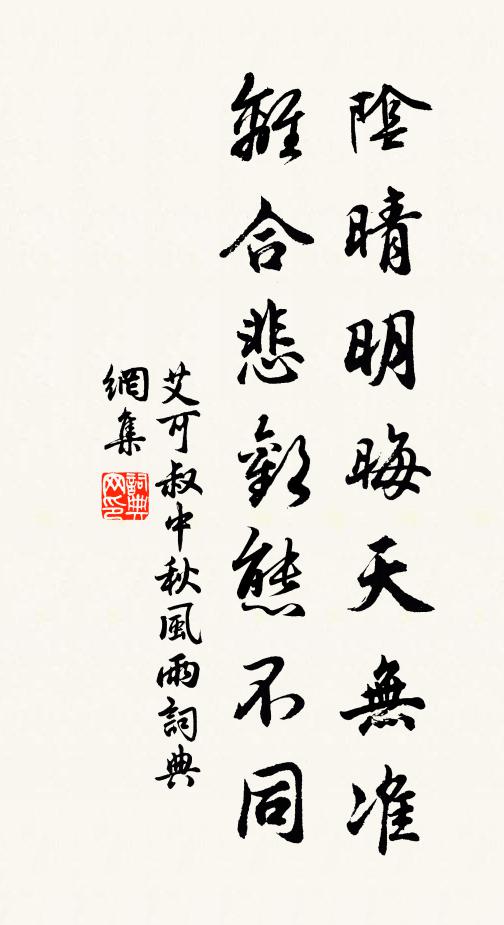 陰晴明晦天無准
離合悲歡態不同
艾可叔中秋風雨詞典
網集
詞典網印